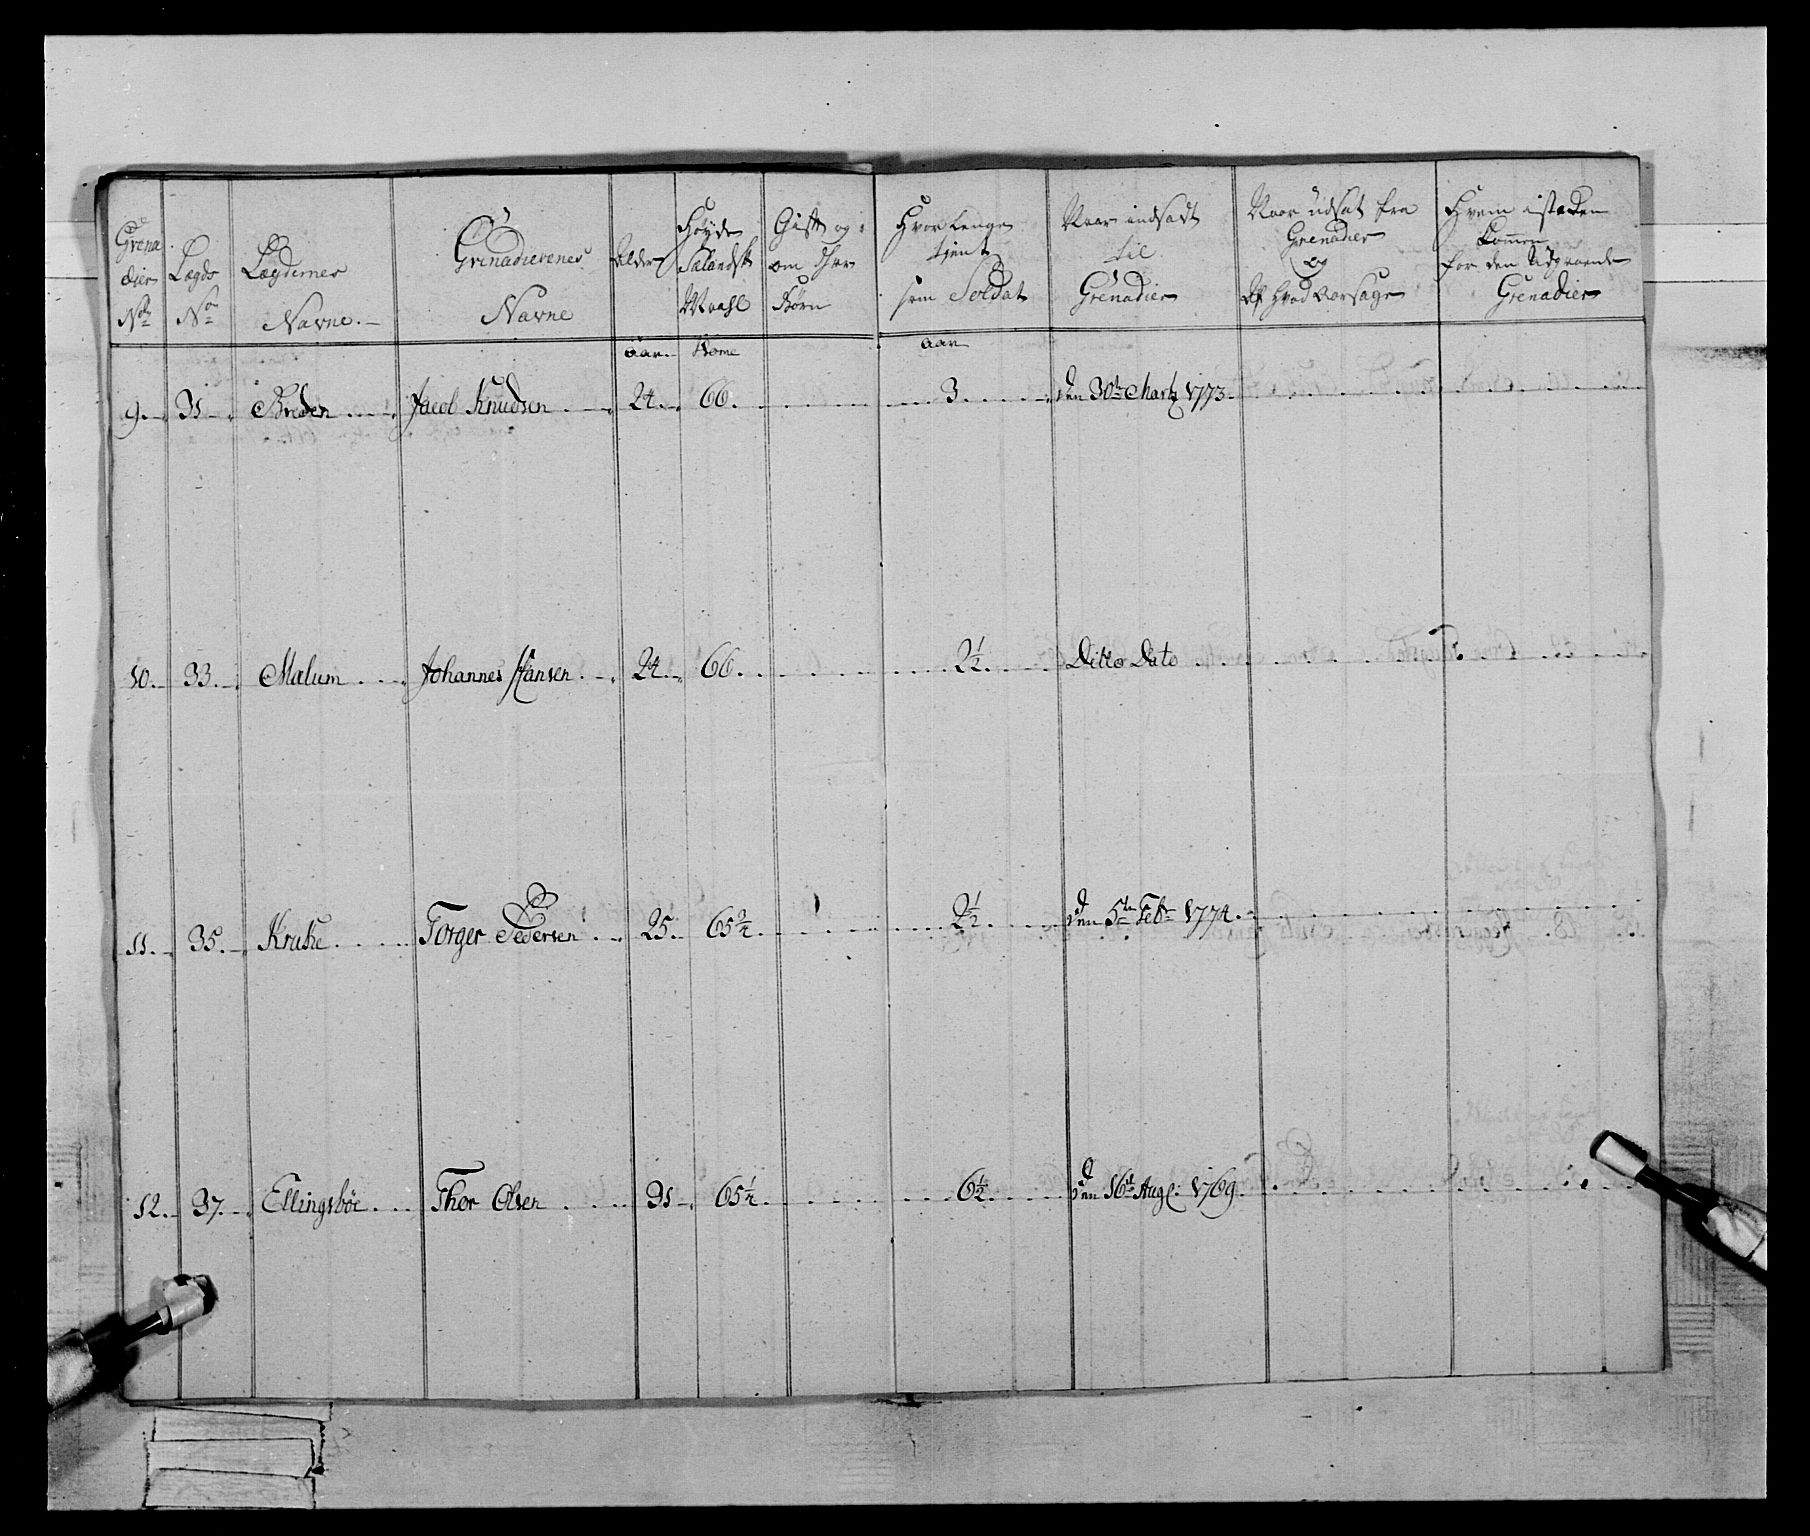 Grenadier No
Lægds No
Lægdernes Navne.
Grenadierenes Navne
Alder
Høyde Sælandsk Maahl
Gift og om Børn
Hvor Lenge tient som Soldat
Naar indsadt til Grenadier
Naar udsat fra Grenadier og Af Hvad Aarsage
Hvem i steden kommen for den Udgaaende Grenadier
Aar. Tome Aar
9. 31 Breden Jacob Knudsen 24 66. 3. den 30te Martz 1773.
10. 33. Malum Johannes Hansen 24 66. 2½ Ditto Dato
11. 35. Kruke Torger Pedersen 25. 65¾ 2½ den 5te Febr 1774.
12. 37. Ellingsböe Thor Olsen 31 65½ 6½ den 16de Aug: 1769.